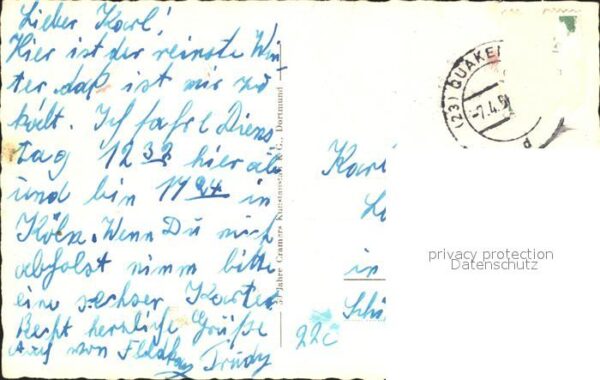 Lieber Karl!
Hier ist der reinste Win
ter, daß ist mir zu
kalt. Ich fahre Diens
tag 12 38 hier ab
und bin 17 44 in
Köln. Wenn Du mich
abholst nimm bitte
eine sechser Karte
Recht herzliche Grüße
Auch von
Trudy
50 Jahre Cramers Kunstanstalt K.G., Dortmund
(23) QUAKE
-7.4.5
in
22c
privacy protection
Datenschutz